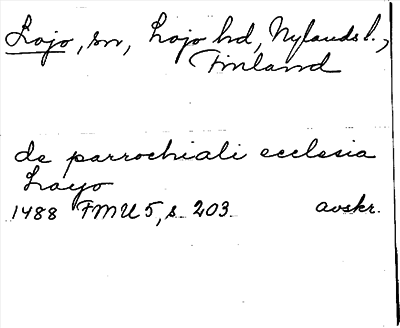 Lojo, sn, Lojo hd, Nylands l.,
Finland
de parrochiali ecclesia
Layo
1488 FMU 5, s. 203. avskr.